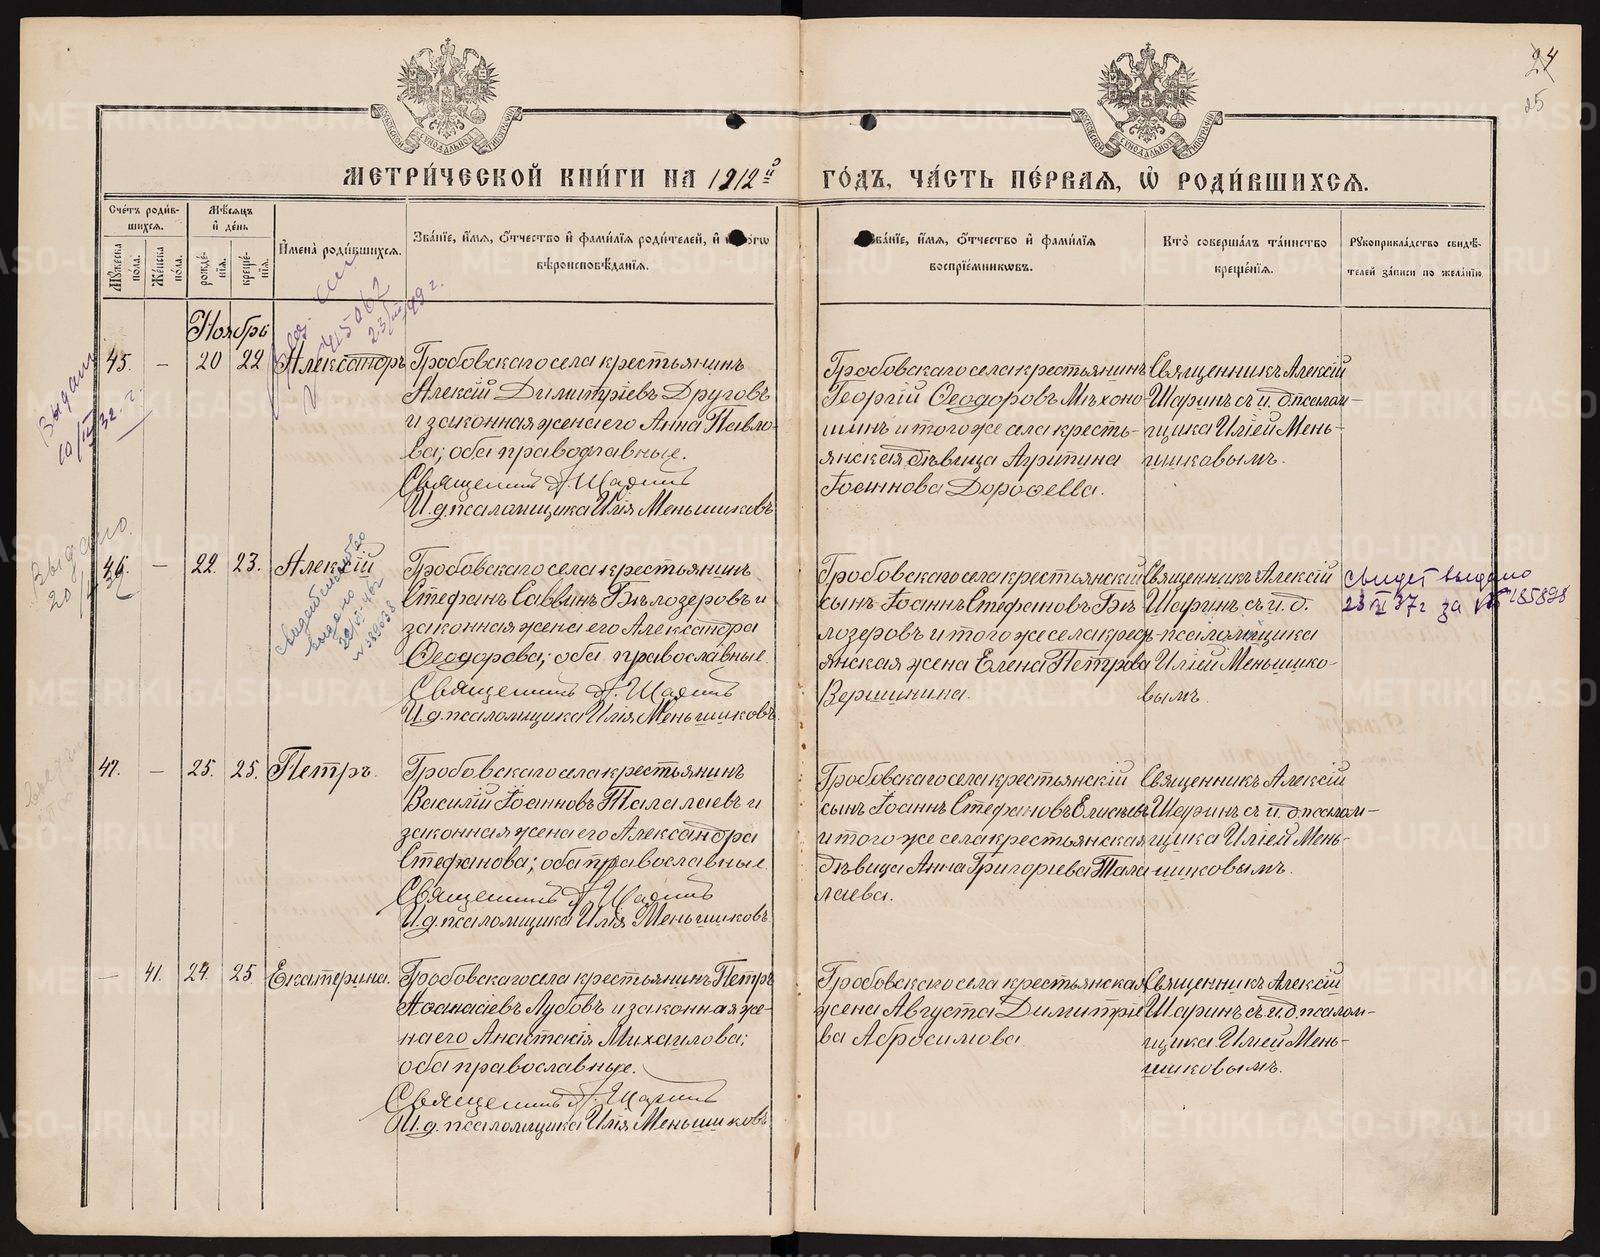 24
25
МЕТРИ́ЧЕСКОЙ КНИ́ГИ НА 1912й
ГО́ДЪ, ЧА́СТЬ ПЕ́РВАЯ, Ѡ РОДИ́ВШИХСЯ.
Сче́тъ роди́в-
шихся.
Му́жеска по́ла.
Же́нска по́ла.
Мѣ́сяцъ
и де́нь
рожде́-
нїя.
креще́-
нїя.
Имена̀ роди́вшихся.
Зва́нїе, и́мя, о́тчество и фами́лїя роди́телей, и
вѣроисповѣ́данїя.
и́мя, о́тчество и фами́лїя
воспрїе́мниковъ.
Кто̀ соверша́лъ та́инство
креще́нїя.
Рукоприкла́дство свидѣ́-
телей за́писи по жела́нїю
Ноябрь
45. — 20 22 Александръ
Гробовскаго села крестьянинъ
Алексій Димитріевъ Друговъ
и законная жена его Анна Павло-
ва; оба православные.
Священникъ А. Шаринъ
И. д. псаломщика Илія Меньшиковъ
Гробовскаго села крестьянинъ
Георгій Ѳеодоровъ Мѣхоно-
шинъ и того же села кресть-
янская дѣвица Агрипина
Іоаннова Дороѳеева.
Священникъ Алексій
Шаринъ съ и. д. псалом-
щика Иліей Мень-
шиковымъ.
Выдана
10/II 32. г.
45062
46. — 22. 23. Алексій
Гробовскаго села крестьянинъ
Стефанъ Саввинъ Бѣлозеровъ и
законная жена его Александра
Ѳеодорова; оба православные
Священникъ А. Шаринъ
И. д. псаломщика Илія Меньшиковъ
Гробовскаго села крестьянскій
сынъ Іоаннъ Стефановъ Бѣ-
лозеровъ и того же села крес-
янская жена Елена Петрова
Вершинина.
Священникъ Алексій
Шаринъ съ и. д.
псаломщика
Иліей Меньшико-
вымъ.
Свидет выдано
23 VI 37 г за № 185828
Выдано
47. — 25. 25. Петръ
Гробовскаго села крестьянинъ
Василій Іоанновъ Талалаевъ и
законная жена его Александра
Стефанова; оба православные
Священникъ А. Шаринъ
И. д. псаломщика Илія Меньшиковъ
Гробовскаго села крестьянскій
сынъ Іоаннъ Стефановъ
и того же села крестьянская
дѣвица Анна Григорьева Тала-
лаева.
Священникъ Алексій
Шаринъ съ и. д. псалом-
щика Иліей Мень-
шиковымъ.
— 41. 24. 25 Екатерина.
Гробовскаго села крестьянинъ Петръ
Аѳанасіевъ Лубовъ и законная же-
на его Анастасія Михаилова;
оба православные.
Священникъ А. Шаринъ
И. д. псаломщика Илія Меньшиковъ
Гробовскаго села крестьянская
жена Августа Димитріе-
ва Абросимова
Священникъ Алексій
Шаринъ съ и. д. псалом-
щика Иліей Мень-
шиковымъ.
METRIKI.GASO-URAL.RU